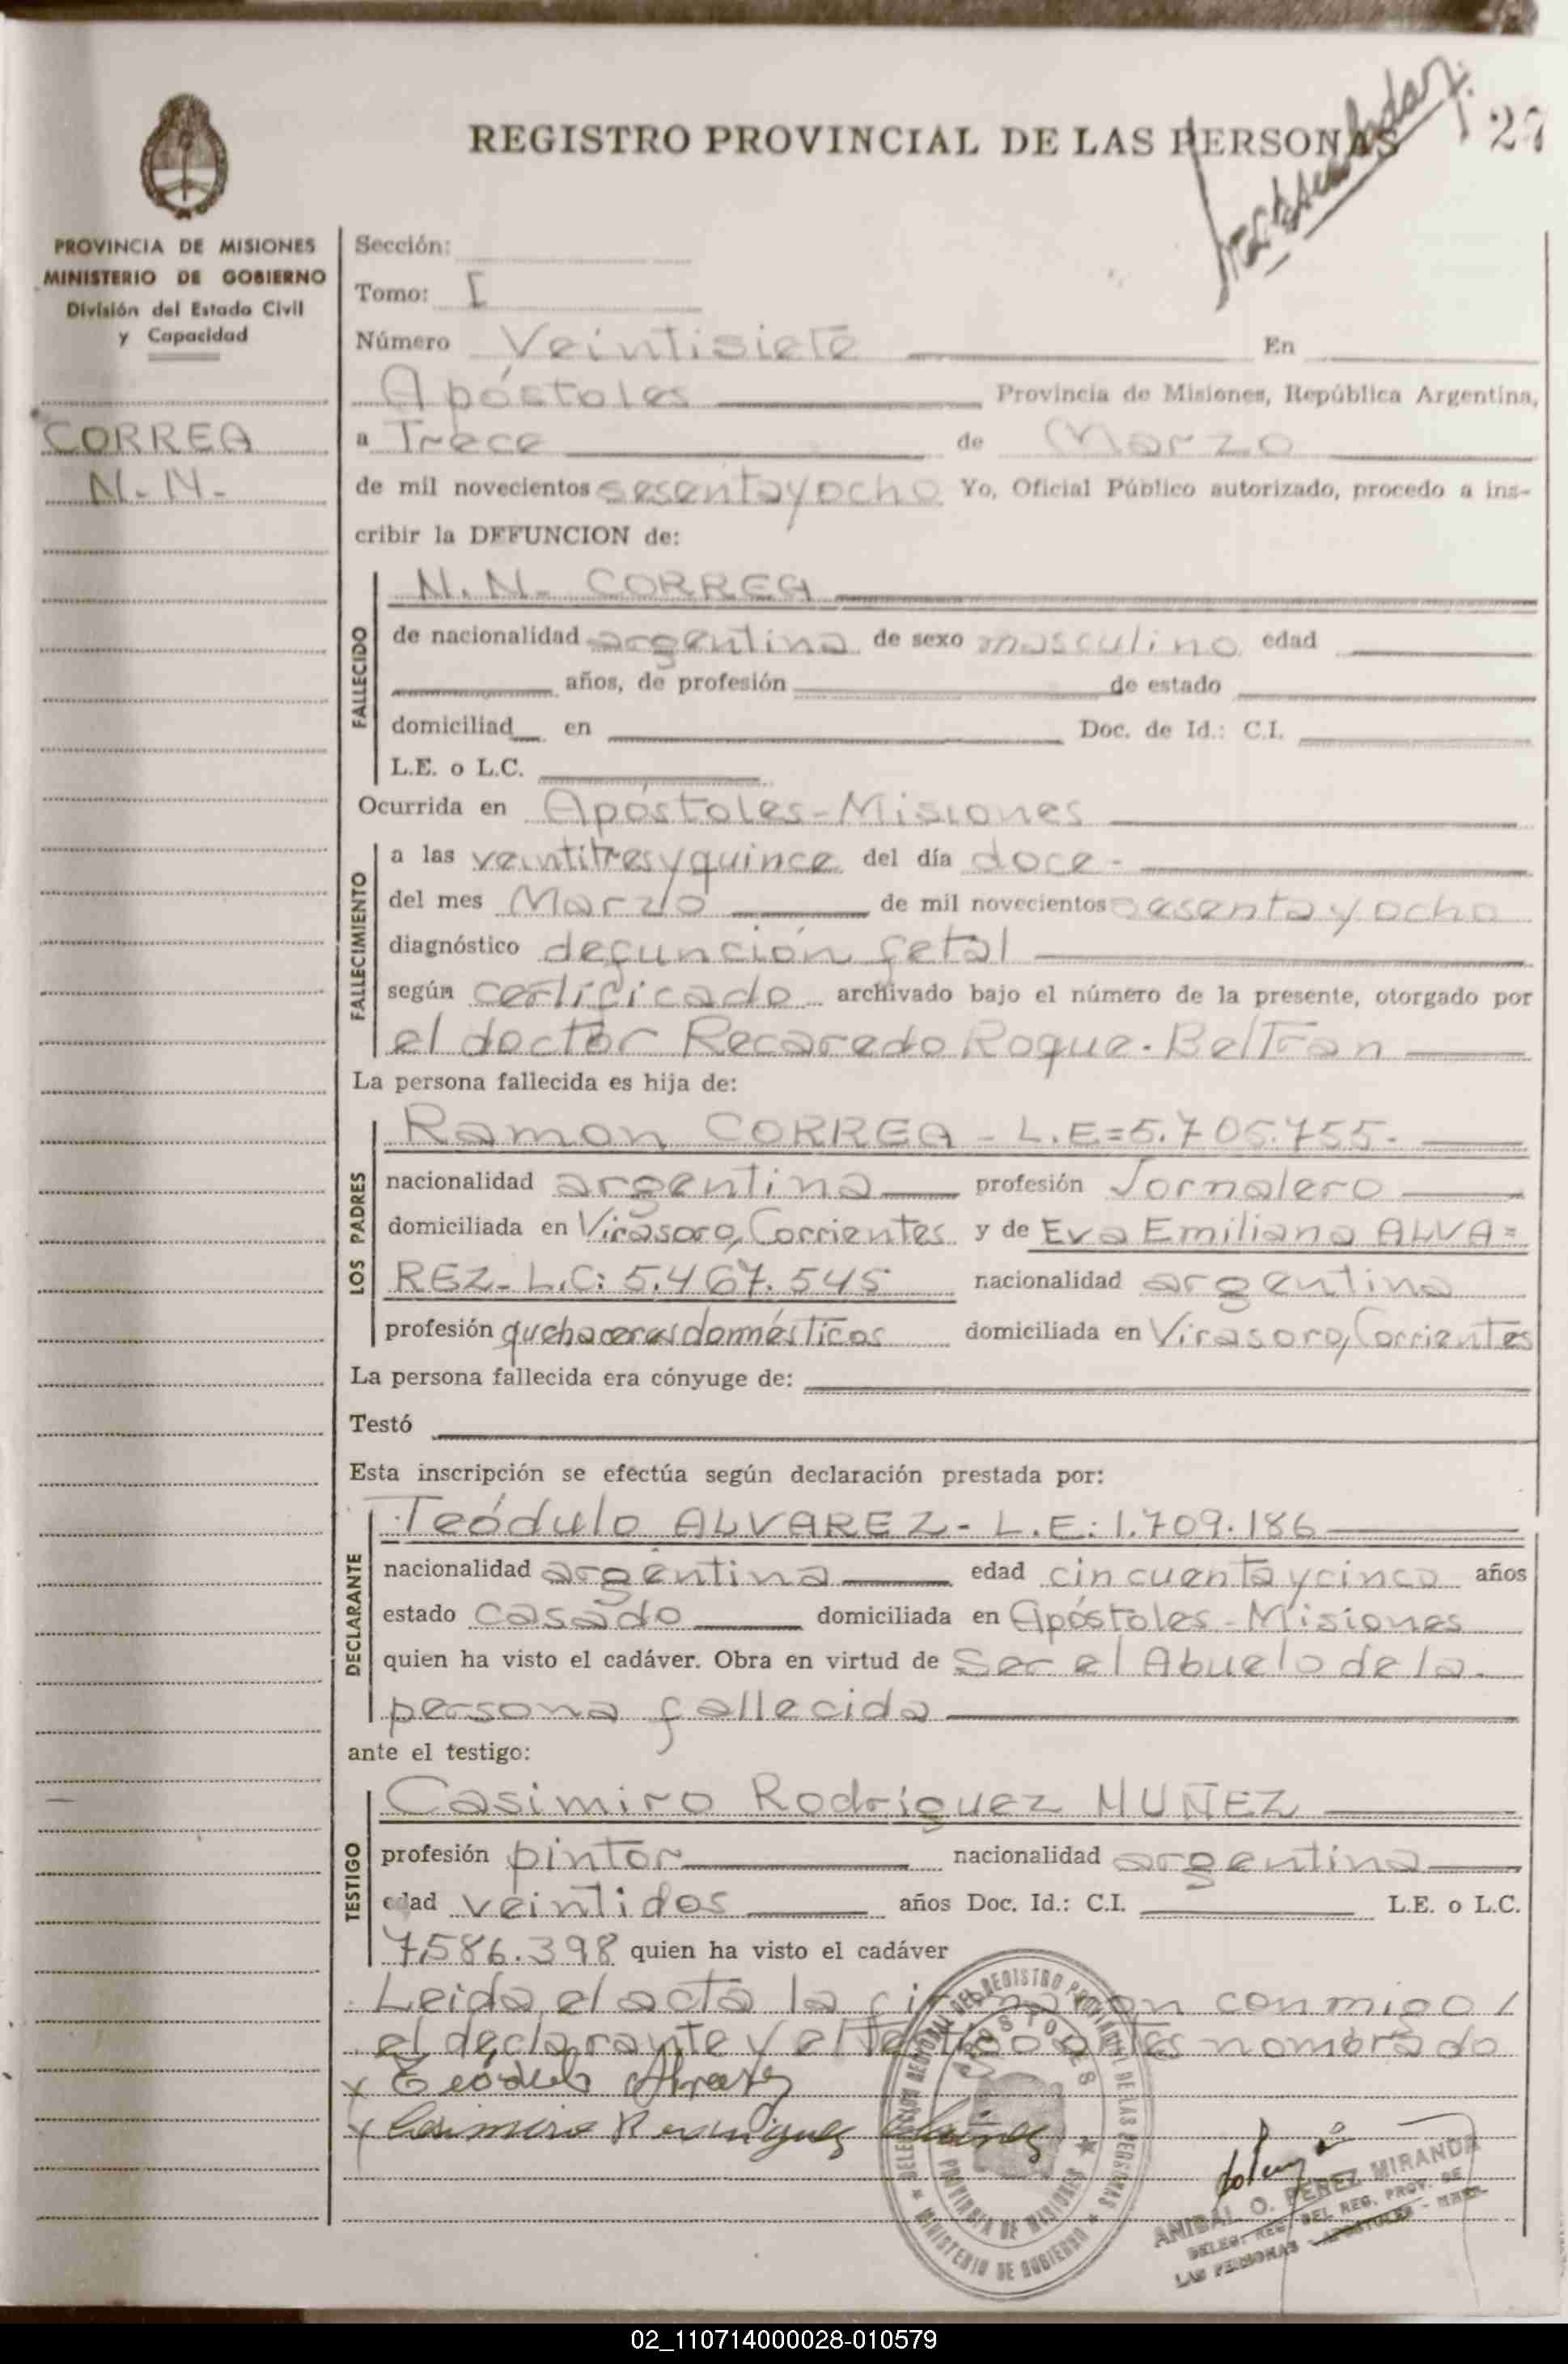 REGISTRO PROVINCIAL DE LAS PERSONAS
27
PROVINCIA DE MISIONES
MINISTERIO DE GOBIERNO
División del Estado Civil
y Capacidad
CORREA
N.N.-
Sección:
Tomo: I
Número Veintisiete En
Apóstoles Provincia de Misiones, República Argentina,
a Trece de Marzo
de mil novecientos sesentayocho Yo, Oficial Público autorizado, procedo a ins-
cribir la DEFUNCION de:
FALLECIDO
N.N. CORREA
de nacionalidad argentina de sexo masculino edad
años, de profesión de estado
domiciliad en Doc. de Id.: C.I.
L.E. o L.C.
Ocurrida en Apóstoles-Misiones
FALLECIMIENTO
a las veintitresyquince del día doce-
del mes Marzo de mil novecientos sesentayocho
diagnóstico defunción fetal
según certificado archivado bajo el número de la presente, otorgado por
el doctor Recaredo Roque.BelTran
La persona fallecida es hija de:
LOS PADRES
Ramon CORREA - L.E=5.705.755-
nacionalidad argentina profesión Jornalero
domiciliada en Virasoro, Corrientes y de Eva Emiliana ALVA=
REZ- L.C: 5.467.545 nacionalidad argentina
profesión quehaceresdomésticos domiciliada en Virasoro, Corrientes
La persona fallecida era cónyuge de:
Testó
Esta inscripción se efectúa según declaración prestada por:
DECLARANTE
Teódulo ALVAREZ- L.E: 1.709.186
nacionalidad argentina edad cincuentaycinco años
estado casado domiciliada en Apóstoles-Misiones
quien ha visto el cadáver. Obra en virtud de Ser el Abuelo de la
persona fallecida
ante el testigo:
TESTIGO
Casimiro Rodríguez NUÑEZ
profesión pintor nacionalidad argentina
edad veintidos años Doc. Id.: C.I. L.E. o L.C.
7.586.398 quien ha visto el cadáver
Leida el acta la firmaron conmigo/
el declarante y el Testigo antes nombrado
x Teódulo Alvarez
x Casimiro Rodriguez Nuñez
DELEGACION REGIONAL DEL REGISTRO PROVINCIAL DE LAS PERSONAS
APOSTOLES
PROVINCIA DE MISIONES
MINISTERIO DE GOBIERNO
ANIBAL O. PEREZ MIRANDA
DELEG. REG. DEL REG. PROV. DE
LAS PERSONAS - APOSTOLES - MNES.
02_110714000028-010579